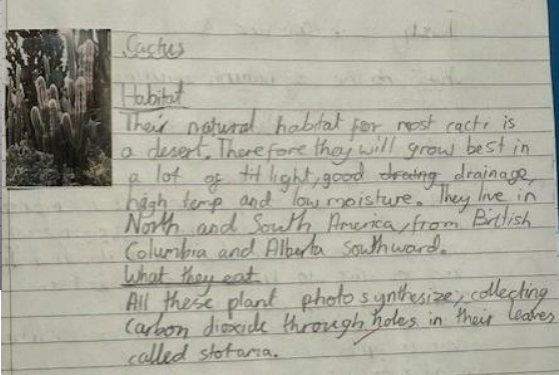 Cactus
Habitat
Their natural habitat for most cacti is
a desert. Therefore they will grow best in
a lot of light, good drainage,
high temp and low moisture. They live in
North and South America, from British
Columbia and Alberta southward.
What they eat
All these plant photosynthesize, collecting
carbon dioxide through holes in their leaves
called stotama.